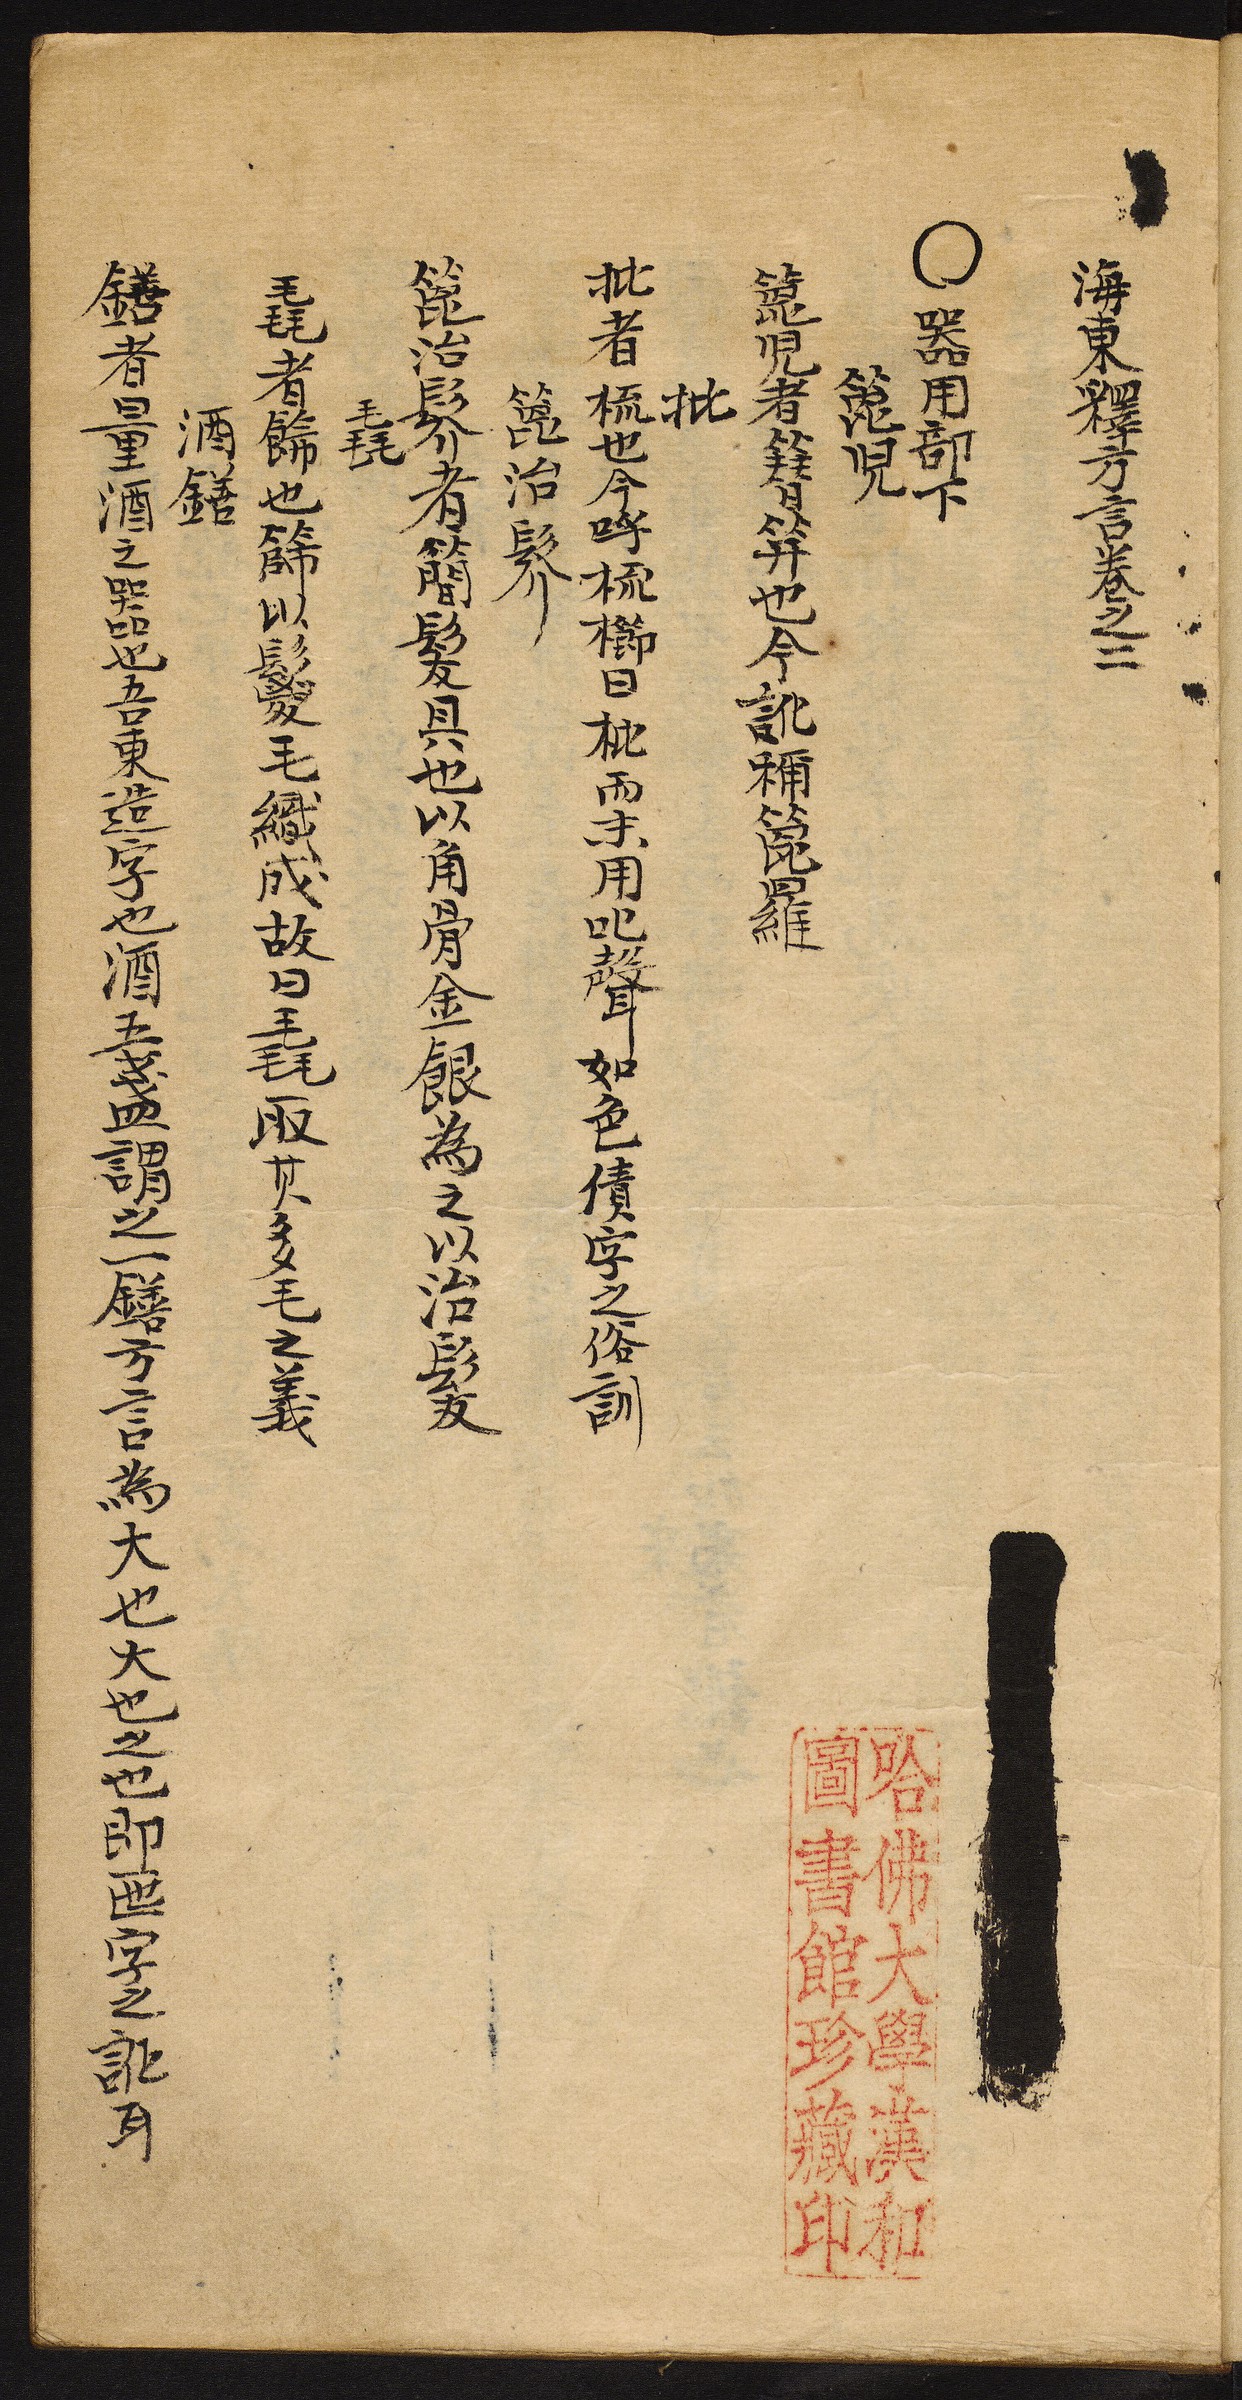 海東釋方言卷之二
○器用部下
篦児
篦児者簪笄也今訛稱篦羅
枇
枇者梳也今呼梳櫛曰枇而末用叱聲如色債字之俗訓
篦治髺
篦治髺者簡髮具也以角骨金銀為之以治髮
毳
毳者篩也篩以鬉毛織成故曰毳取其多毛之義
酒鐥
鐥者量酒之器也吾東造字也酒五盞謂之一鐥方言為大也大也之也即匜字之訛耳
哈佛大學漢和
圖書館珍藏印